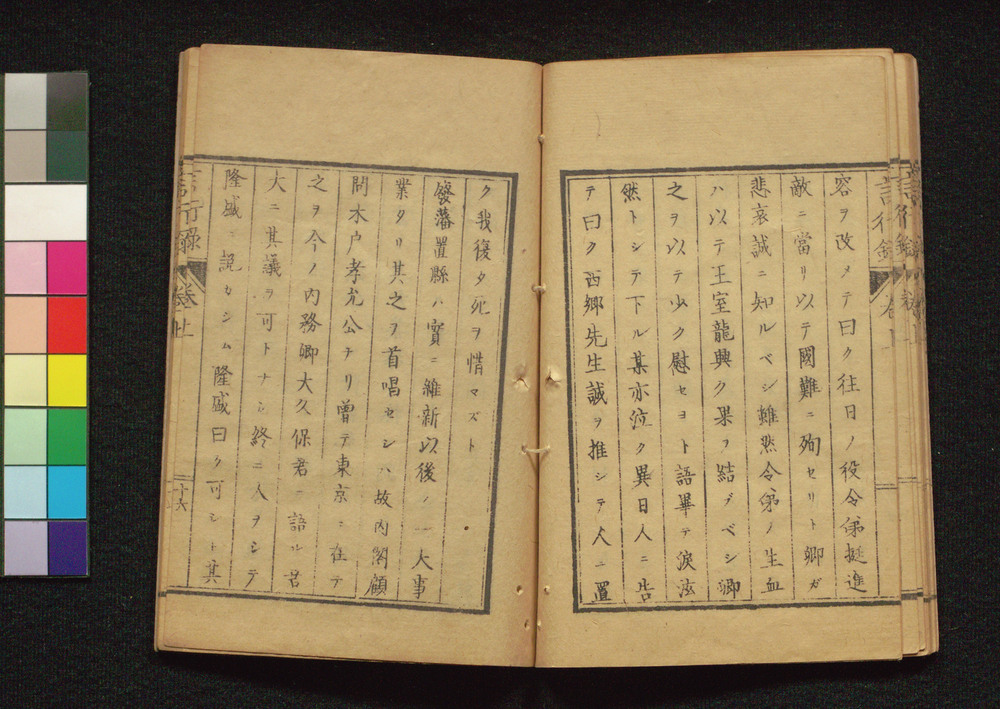 容ヲ改メテ曰ク往日ノ役令弟挺進
敵ニ當リ以テ國難ニ殉セリト卿ガ
悲哀誠ニ知ルベシ雖然令弟ノ生血
ハ以テ王室龍興ク果ヲ結ブベシ卿
之ヲ以テ少ク慰セヨト語畢テ淚泫
然トシテ下ル某亦泣ク異日人ニ告
テ曰ク西郷先生誠ヲ推シテ人ニ置
ク我復タ死ヲ惜マズト
發藩置縣ハ實ニ維新以後ノ一大事
業タリ其之ヲ首唱セシハ故内閣顧
問木戸孝允公ナリ曽テ東京ニ在テ
之ヲ今ノ内務卿大久保君ニ語ル君
大ニ其議ヲ可トナシ終ニ人ヲシテ
隆盛ニ説カシム隆盛曰ク可シト其
言行録
卷上
二十六